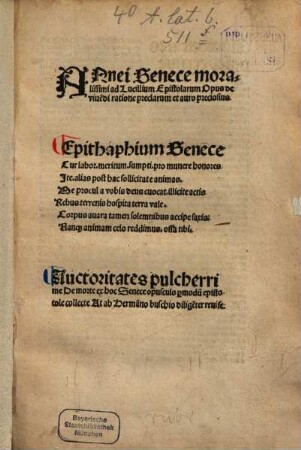 4° A. lat. b.
511 f
Annei Senece mora-
lissimi ad Lucillium Epistolarum Opus de
viuēdi ratione preclarum et auro preciosius.
Epithaphium Senece
Cur labor. meritum. sumpti. pro munere honores
Ite. alias post hac sollicitate animas.
Me procul a vobis deus euocat. illicite actis
Rebus terrenis hospita terra vale.
Corpus auara tamen solemnibus accipe saxis.
Nanq3 animam celo reddimus. ossa tibi.
Auctoritates pulcherri
me De morte ex hoc Senece opusculo ꝑmodū episto-
tole collecte Ac ab Hermāno buschio diligēter reuise.
Bayerische
Staatsbibliothek
München